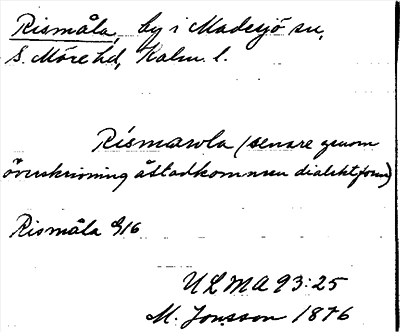 Rismåla, by i Madesjö sn,
S. Möre hd, Kalm. l.
Rismawla (senare genom
överskrivning åstadkommen dialektform)
Rismåla G16
ULMA 93:25
M. Jonsson 1876